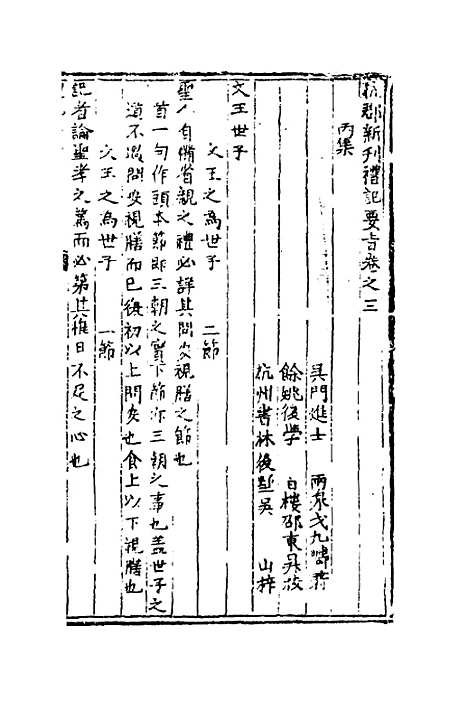 杭郡新刊禮記要旨卷之三
丙集
吳門進士 兩泉戈九疇著
餘姚後學 白樓邵東昇校
杭州書林後墅吳 山梓
文王世子
文王之為世子 二節
聖人自備省親之禮必詳其問安視膳之節也
首一句作頭本節即三朝之實下節亦三朝之事也盖世子之
道不過問安視膳而已後初以上問安也食上以下視膳也
文王之為世子 一節
記者論聖孝之篤而必第其惟日不足之心也